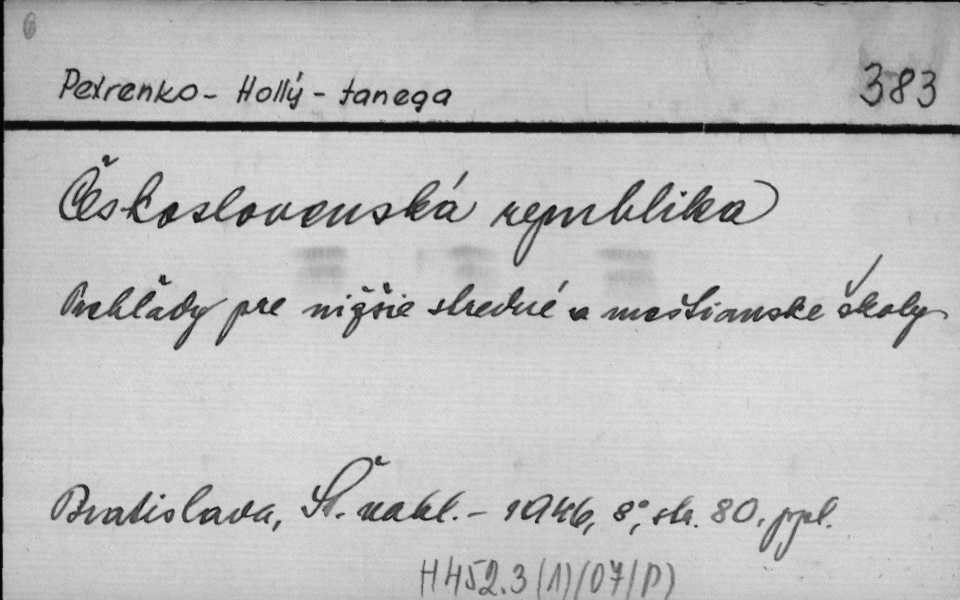 6
Petrenko - Hollý - Fanega 383
Československá republika
Prehľady pre nižšie stredné a meštianske školy
Bratislava, Št. nakl. - 1946, 8°, str. 80, ppl.
H 452.3 (1) (07/P)